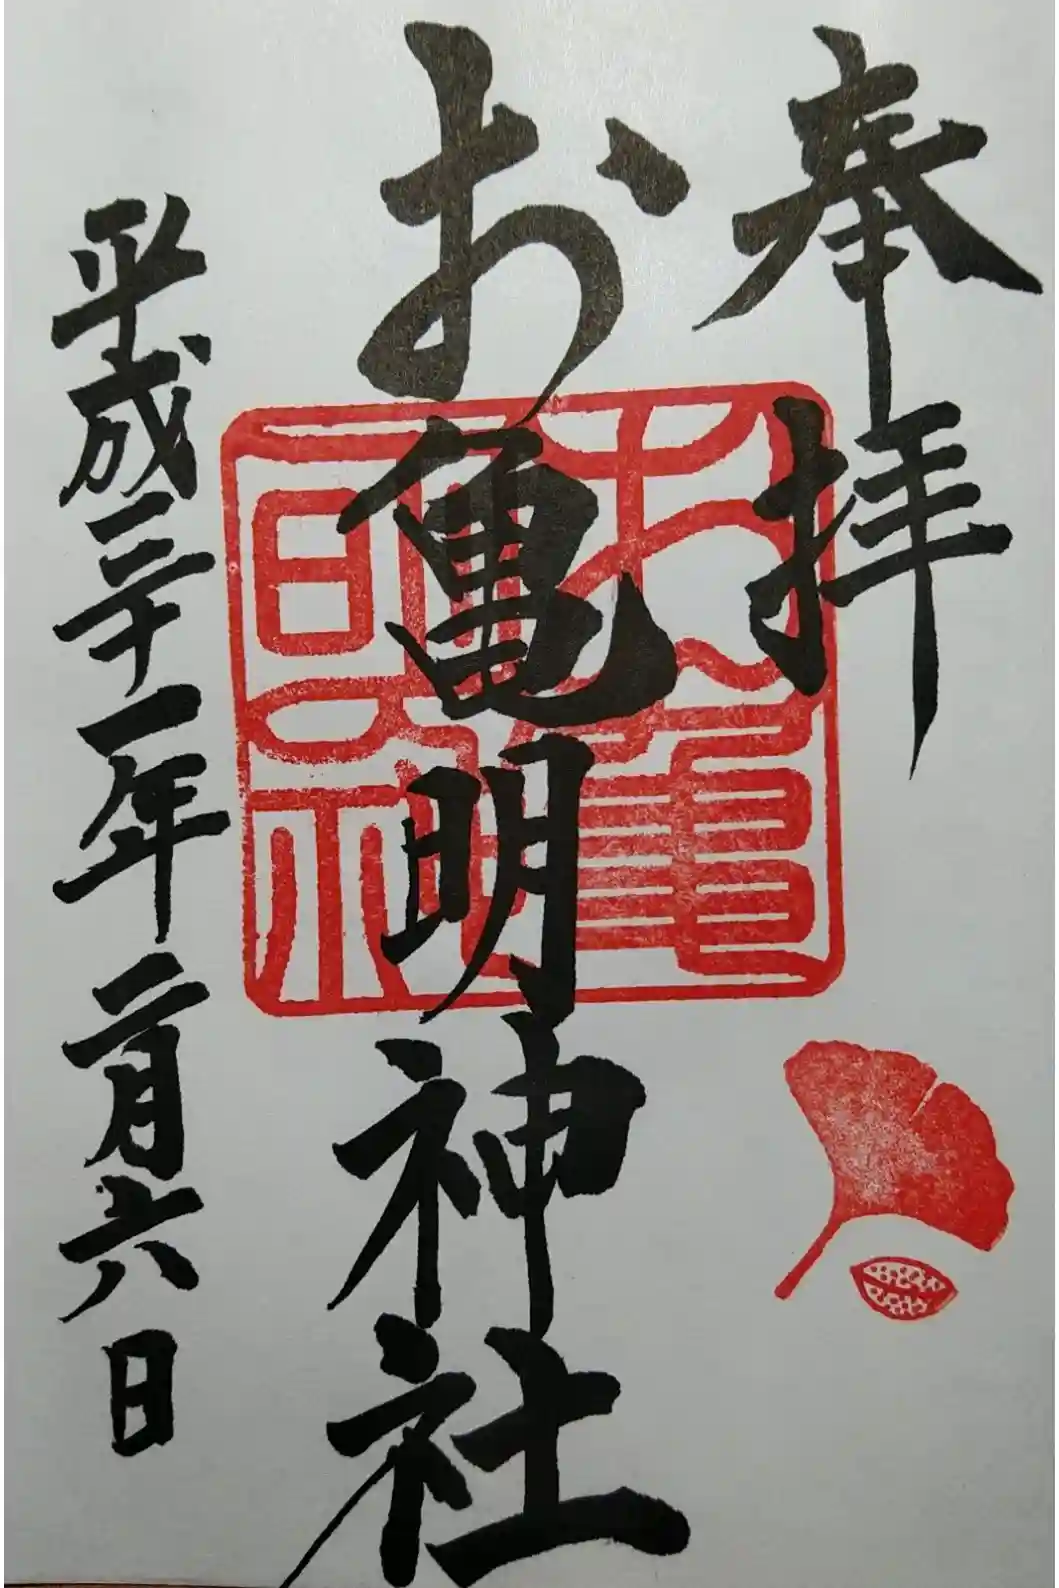 奉拝
お亀明神社
平成三十一年二月六日
お亀
明神